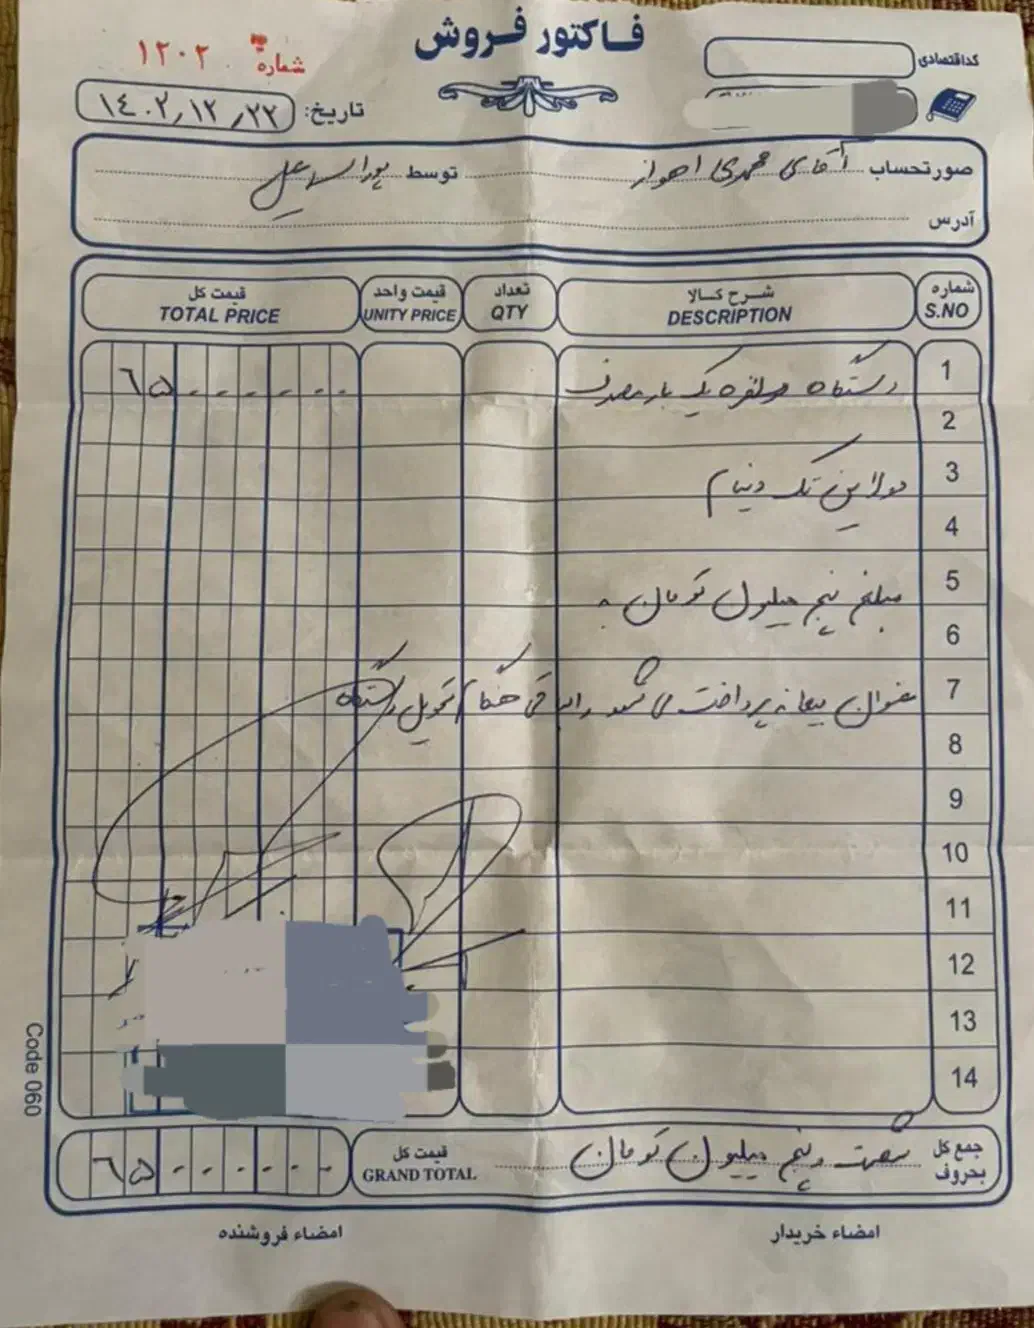 فاکتور فروش
شماره ۱۲۰۲
کد اقتصادی
تاریخ: ۱۴۰۲٫۱۲٫۲۲
صورتحساب آقای محمدی اهواز توسط
آدرس
شماره شرح کالا تعداد قیمت واحد قیمت کل
S.NO DESCRIPTION QTY UNITY PRICE TOTAL PRICE
1 دستگاه سفره یک بار مصرف ۶۵۰۰۰۰۰۰
2
3 لاین تک دینام
4
5 مبلغ پنج میلیون تومان به
6
7 عنوان بیعانه پرداخت می شود والباقی هنگام تحویل دستگاه
8
9
10
11
12
13
14
Code 060
جمع کل بحروف شصت و پنج میلیون تومان قیمت کل GRAND TOTAL ۶۵۰۰۰۰۰۰
امضاء خریدار امضاء فروشنده